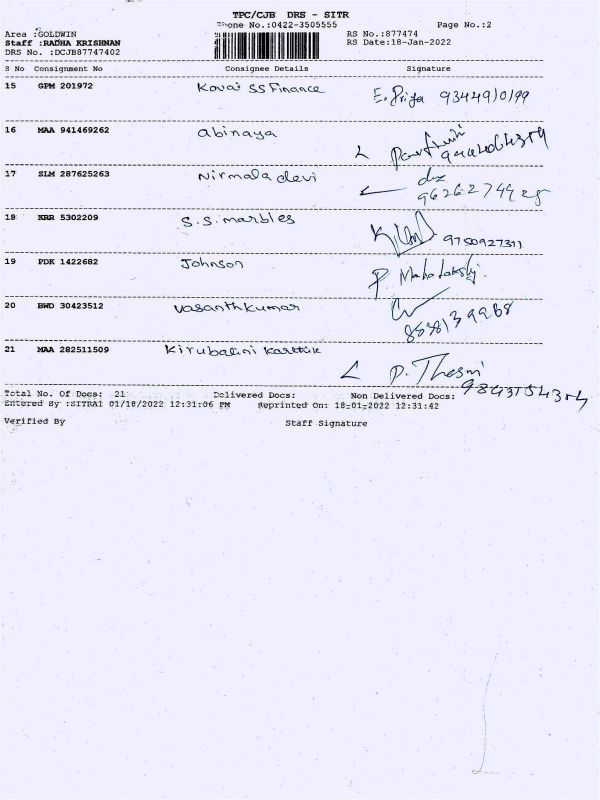 TPC/CJB DRS - SITR
Phone No.:0422-3505555 Page No.:2
Area :GOLDWIN RS No.:877474
Staff :RADHA KRISHNAN RS Date:18-Jan-2022
DRS No. :DCJB87747402
S No Consignment No Consignee Details Signature
15 GPM 201972 Kovai SS Finance E. Priya 9344910199
16 MAA 941469262 abinaya
17 SLM 287625263 Nirmala devi
18 KRR 5302209 S.S. marbles 9750927311
19 PDK 1422682 Johnson P. Mahalakshmi
20 BWD 30423512 Vasanthkumar
21 MAA 282511509 Kirubalini Karthik
Total No. Of Docs: 21 Delivered Docs: Non Delivered Docs:
Entered By :SITRA1 01/18/2022 12:31:06 PM Reprinted On: 18-01-2022 12:31:42
Verified By Staff Signature